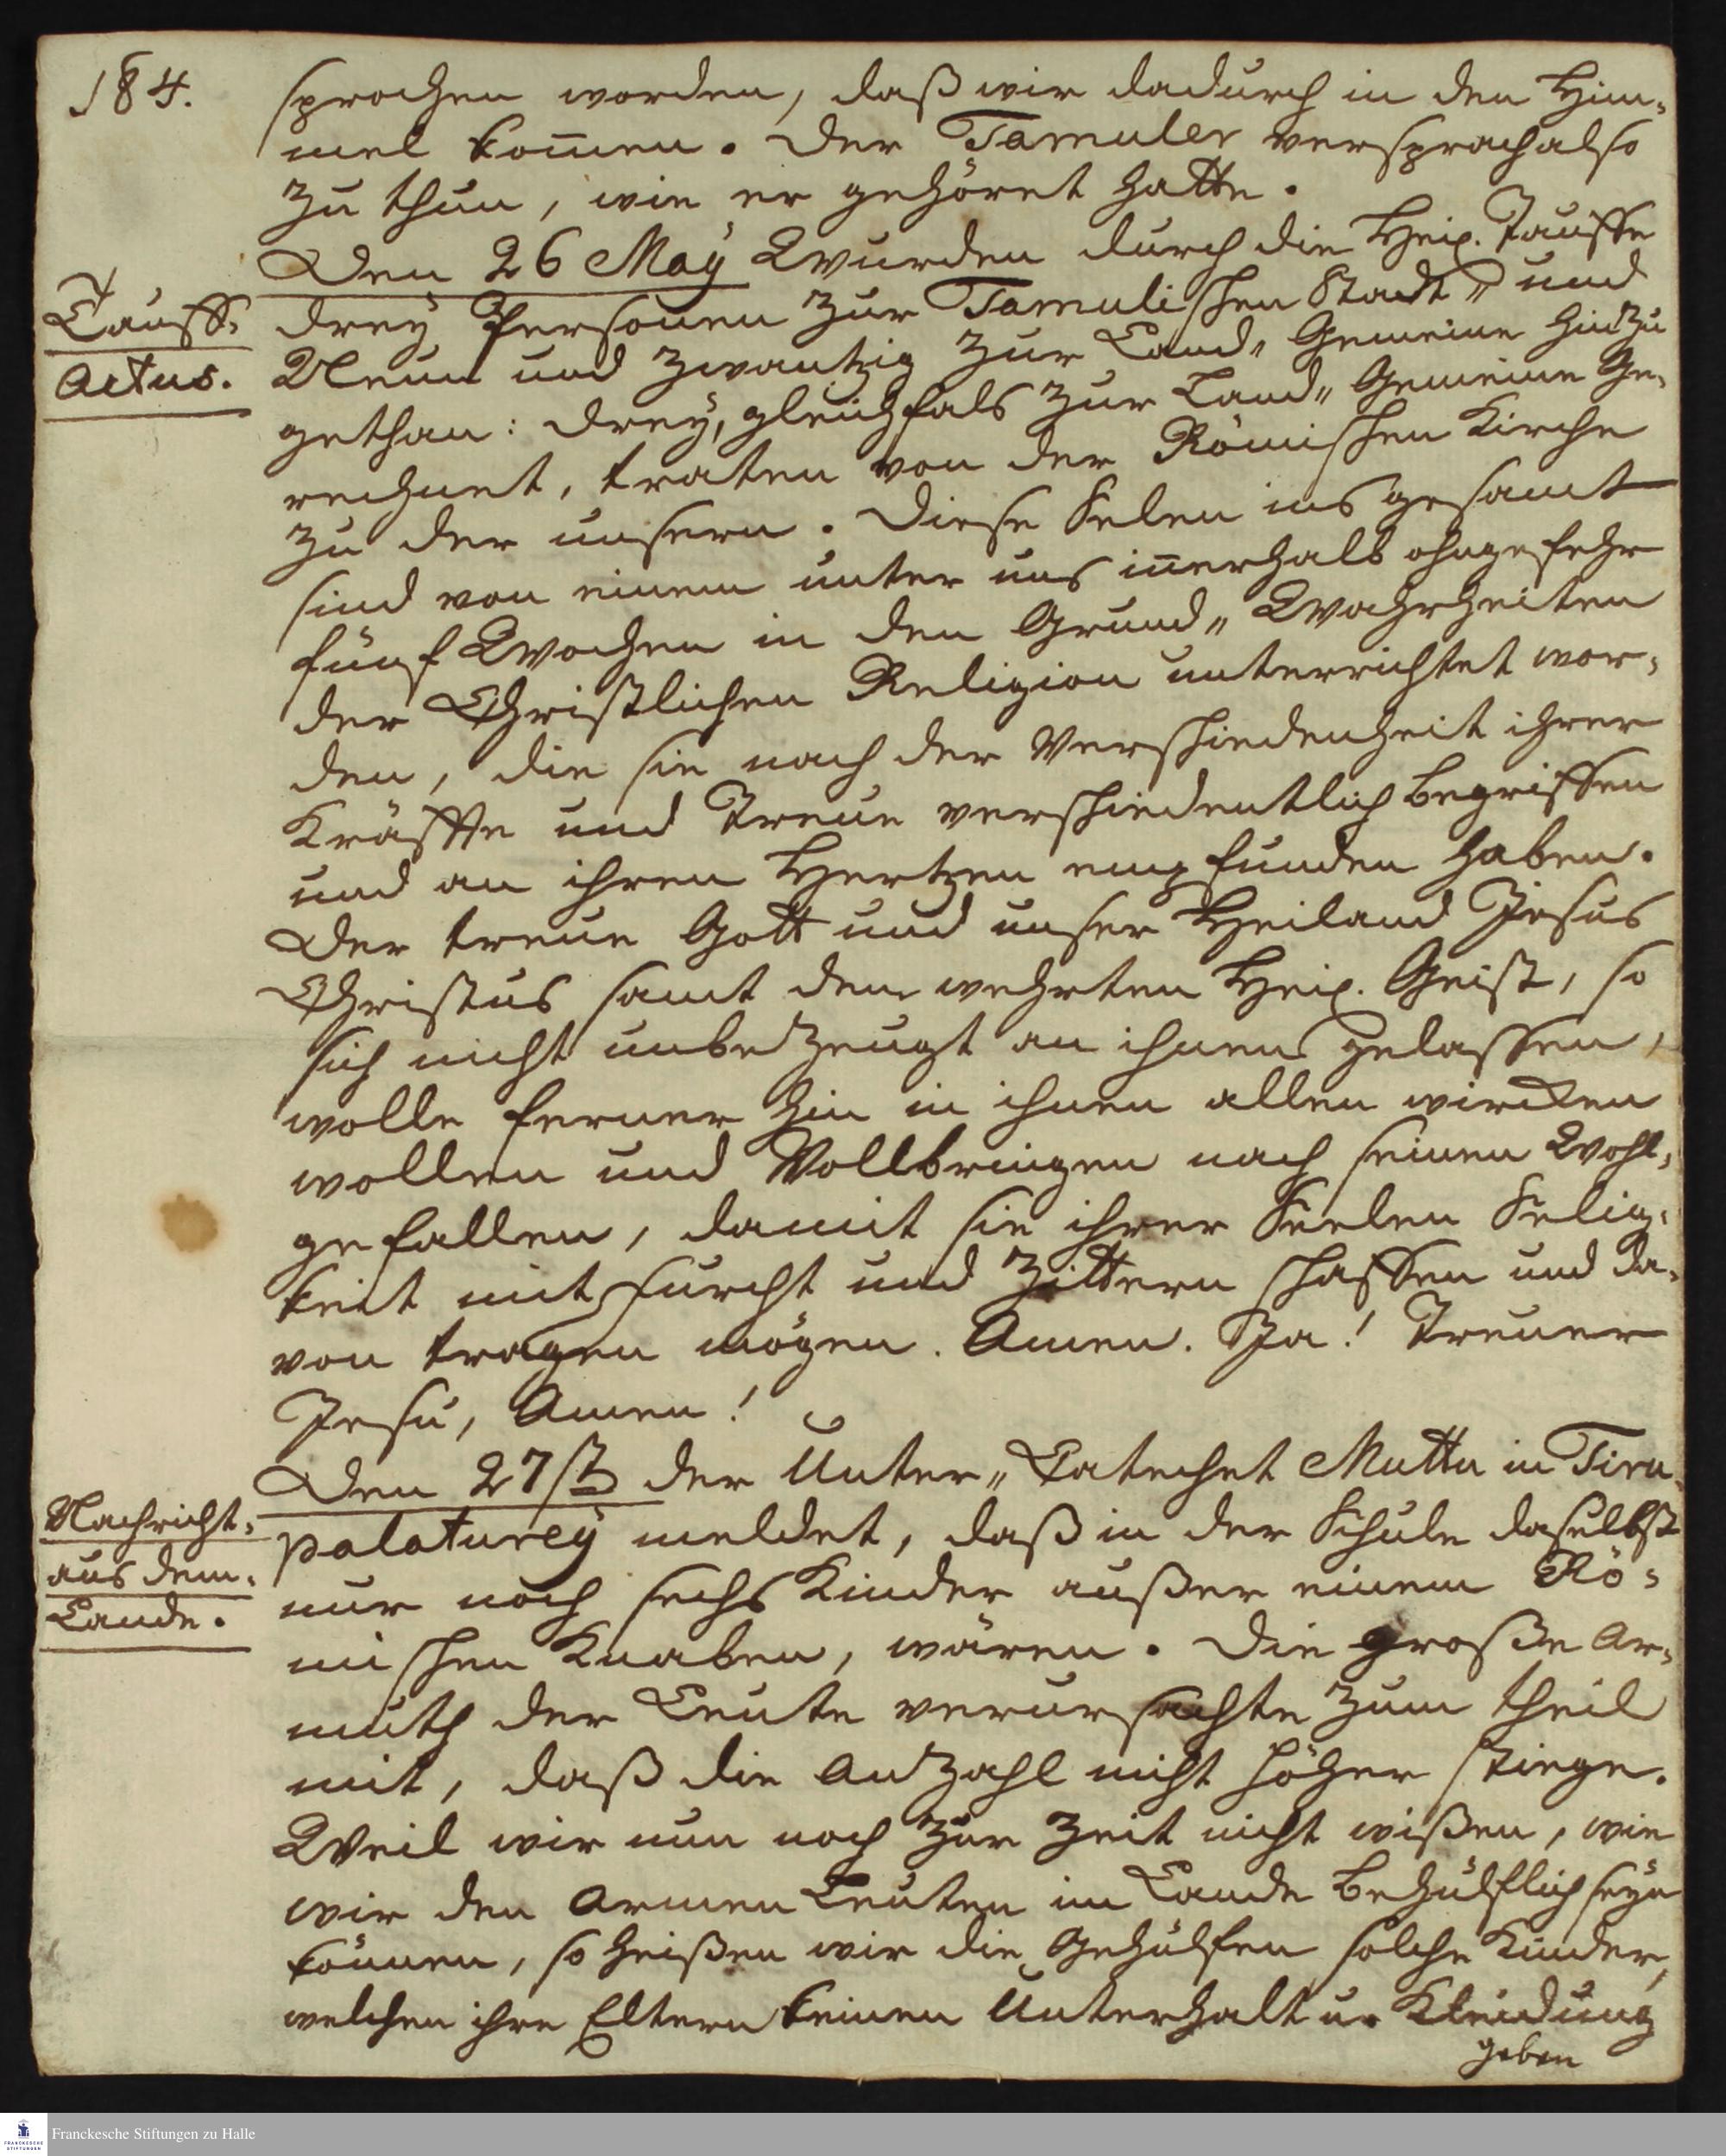 184.
sprochen worden, daß wir dadurch in den Him-
mel kom̅en. Der Tamuler versprach also
zu thun, wie er gehöret hatte.
Den 26 May Wurden durch die Heil. Tauffe
Tauff-
Actus.
drey Personen zur Tamulischen Stadt" und
Neun und zwantzig zur Land" Gemeine hinzu
gethan: drey, gleichfals zur Land" Gemeine Ge-
rechnet, traten von der Römischen Kirche
zu der unsern. Diese Selen ins gesamt
sind von einem unter uns in̅erhalb ohngefehr
fünf Wochen in den Grund" Wahrheiten
der Christlichen Religion unterrichtet wor-
den, die sie nach der Verschiedenheit ihrer
Kräffte und Treue verschiedentlich begriffen
und an ihren Hertzen empfunden haben.
Der treue Gott und unser Heiland Jesus
Christus samt dem wehrten Heil. Geist, so
sich nicht unbezeugt an ihnen gelassen,
wolle ferner hin in ihnen allen wircken
wollen und Vollbringen nach seinen Wohl-
gefallen, damit sie ihrer Seelen Selig-
keit mit Furcht und Zittern schaffen und da-
von tragen mögen. Amen. Ja! Treuer
Jesu, Amen!
Den 27st der Unter" Catechet Muttu in Tiru-
Nachricht-
aus dem-
Lande.
palaturey meldet, daß in der Schule daselbst
nur noch sechs Kinder außer einem Rö-
mischen Knaben, wären. Die große Ar-
muth der Leute verursachte zum theil
mit, daß die Anzahl nicht höher stiege.
Weil wir nun noch zur Zeit nicht wißen, wie
wir den armen Leuten im Lande behülflich seyn
können, so heißen wir die Gehülfen solche Kinder,
welchen ihre Eltern keinen Unterhalt u. Kleidung
geben
FRANCKESCHE STIFTUNGEN
Franckesche Stiftungen zu Halle